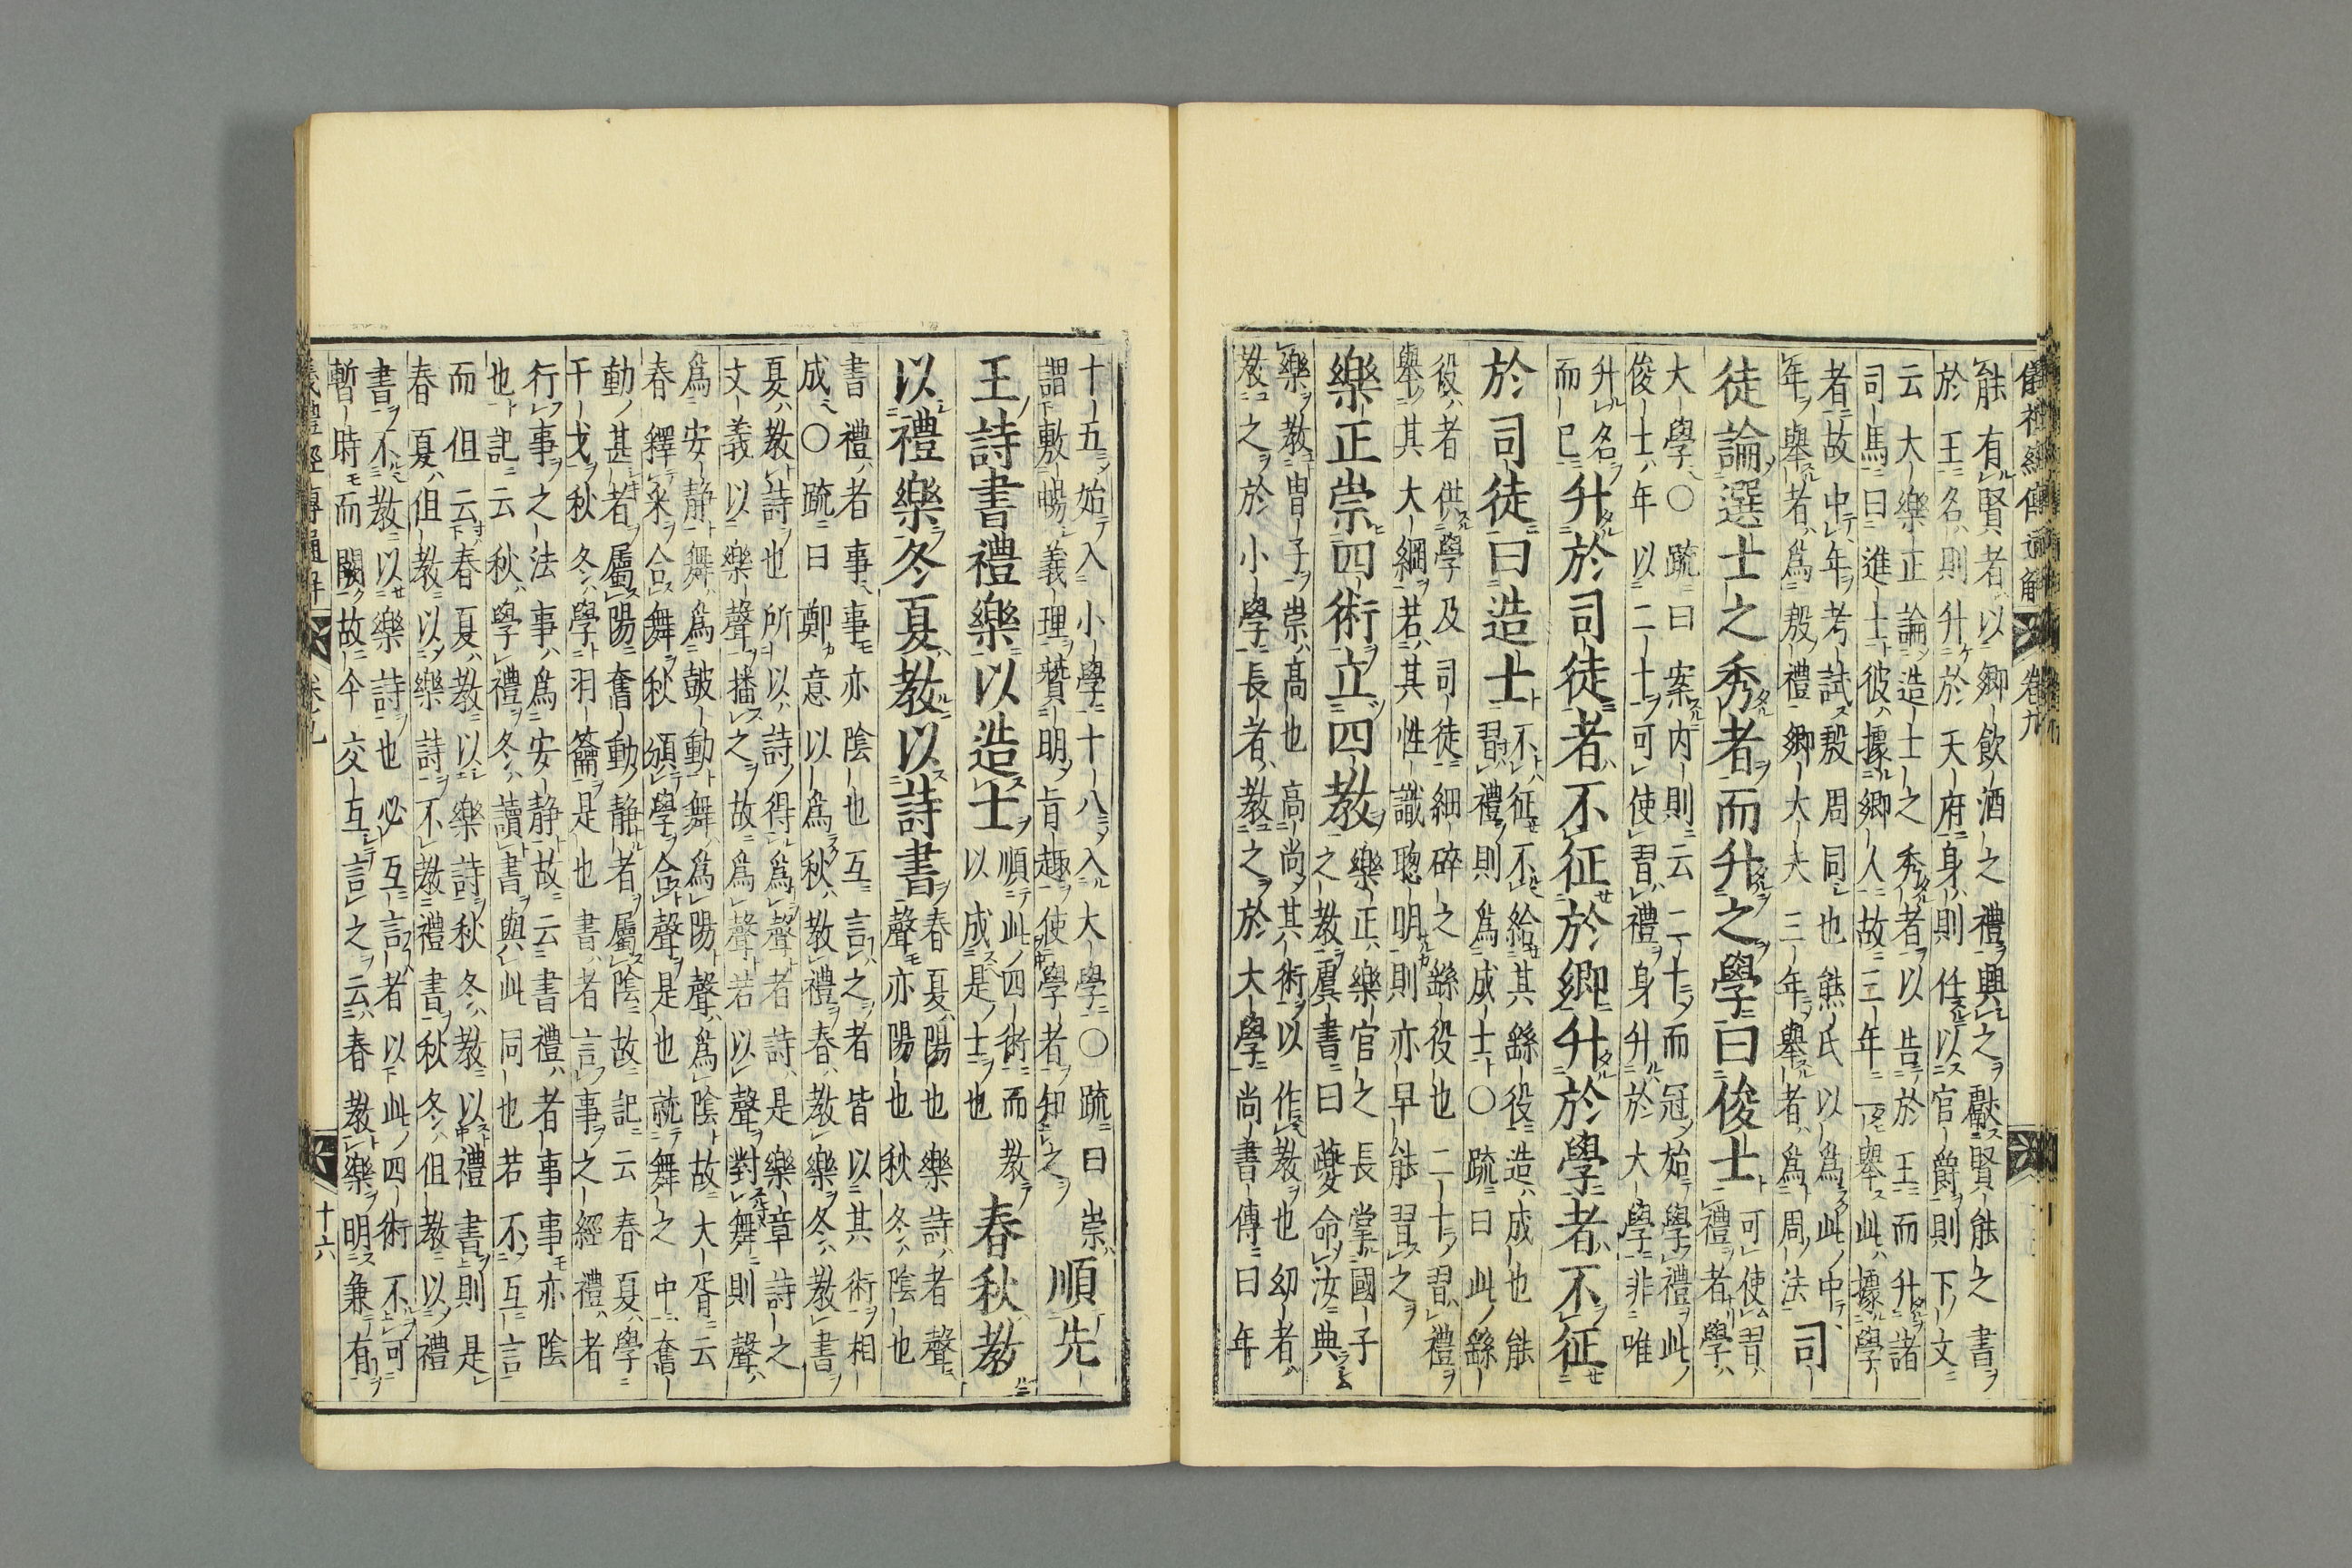 儀禮經傳通解 卷九
能有賢者以鄉飲酒之禮興之獻賢能之書
於王王名則升於天府身則任以官爵則下文
云大樂正論造士之秀者以告於王而升諸
司馬曰進士彼據鄉人故三年一舉此據學
者故中年考試殷周同也熊氏以爲此中
年舉者爲殷禮鄉大夫三年舉者爲周法司
徒論選士之秀者而升之學曰俊士可使習
禮者學
大學○疏曰案內則云二十而冠始學禮此
俊士年以二十可使習禮身升於大學非唯
升名
而已升於司徒者不征於鄉升於學者不征
於司徒曰造士不征不給其繇役造成也能
習禮則爲成士○疏曰此繇
役者供學及司徒細碎之繇役也二十習禮
舉其大綱若其性識聰明則亦早能習之
樂正崇四術立四教樂正樂官之長掌國子
之教虞書曰夔命汝典
樂教冑子崇高也高尚其術以作教也幼者
教之於小學長者教之於大學尚書傳曰年
十五始入小學十八入大學○疏曰崇
謂敷暢義理贊明旨趣使學者知之順先
王詩書禮樂以造士順此四術而教
以成是士也春秋教
以禮樂冬夏教以詩書春夏陽也樂詩者聲
聲亦陽也秋冬陰也
書禮者事事亦陰也互言之者皆以其術相
成○疏曰鄭意以爲秋教禮春教樂冬教書
夏教詩也所以詩得爲聲者詩是樂章詩之
文義以樂聲播之故爲聲若以聲對舞則聲
爲安靜舞爲鼓動舞爲陽聲爲陰故大胥云
春釋采合舞秋頒學合聲是也就舞之中奮
動甚者屬陽奮動靜者屬陰故記云春夏學
干戈秋冬學羽籥是也書者言事之經禮者
行事之法事爲安靜故云書禮者事事亦陰
也記云秋學禮冬讀書與此同也若不互言
而但云春夏教以樂詩秋冬教以禮書則是
春夏但教以樂詩不教禮書秋冬但教以禮
書不教以樂詩也必互言者以此四術不可
暫時而闕故今交互言之云春教樂明兼有
儀禮經傳通解 卷九 十六